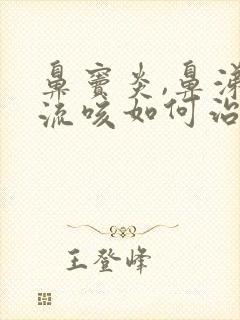 鼻窦炎,鼻涕
流咳如何治
王登峰